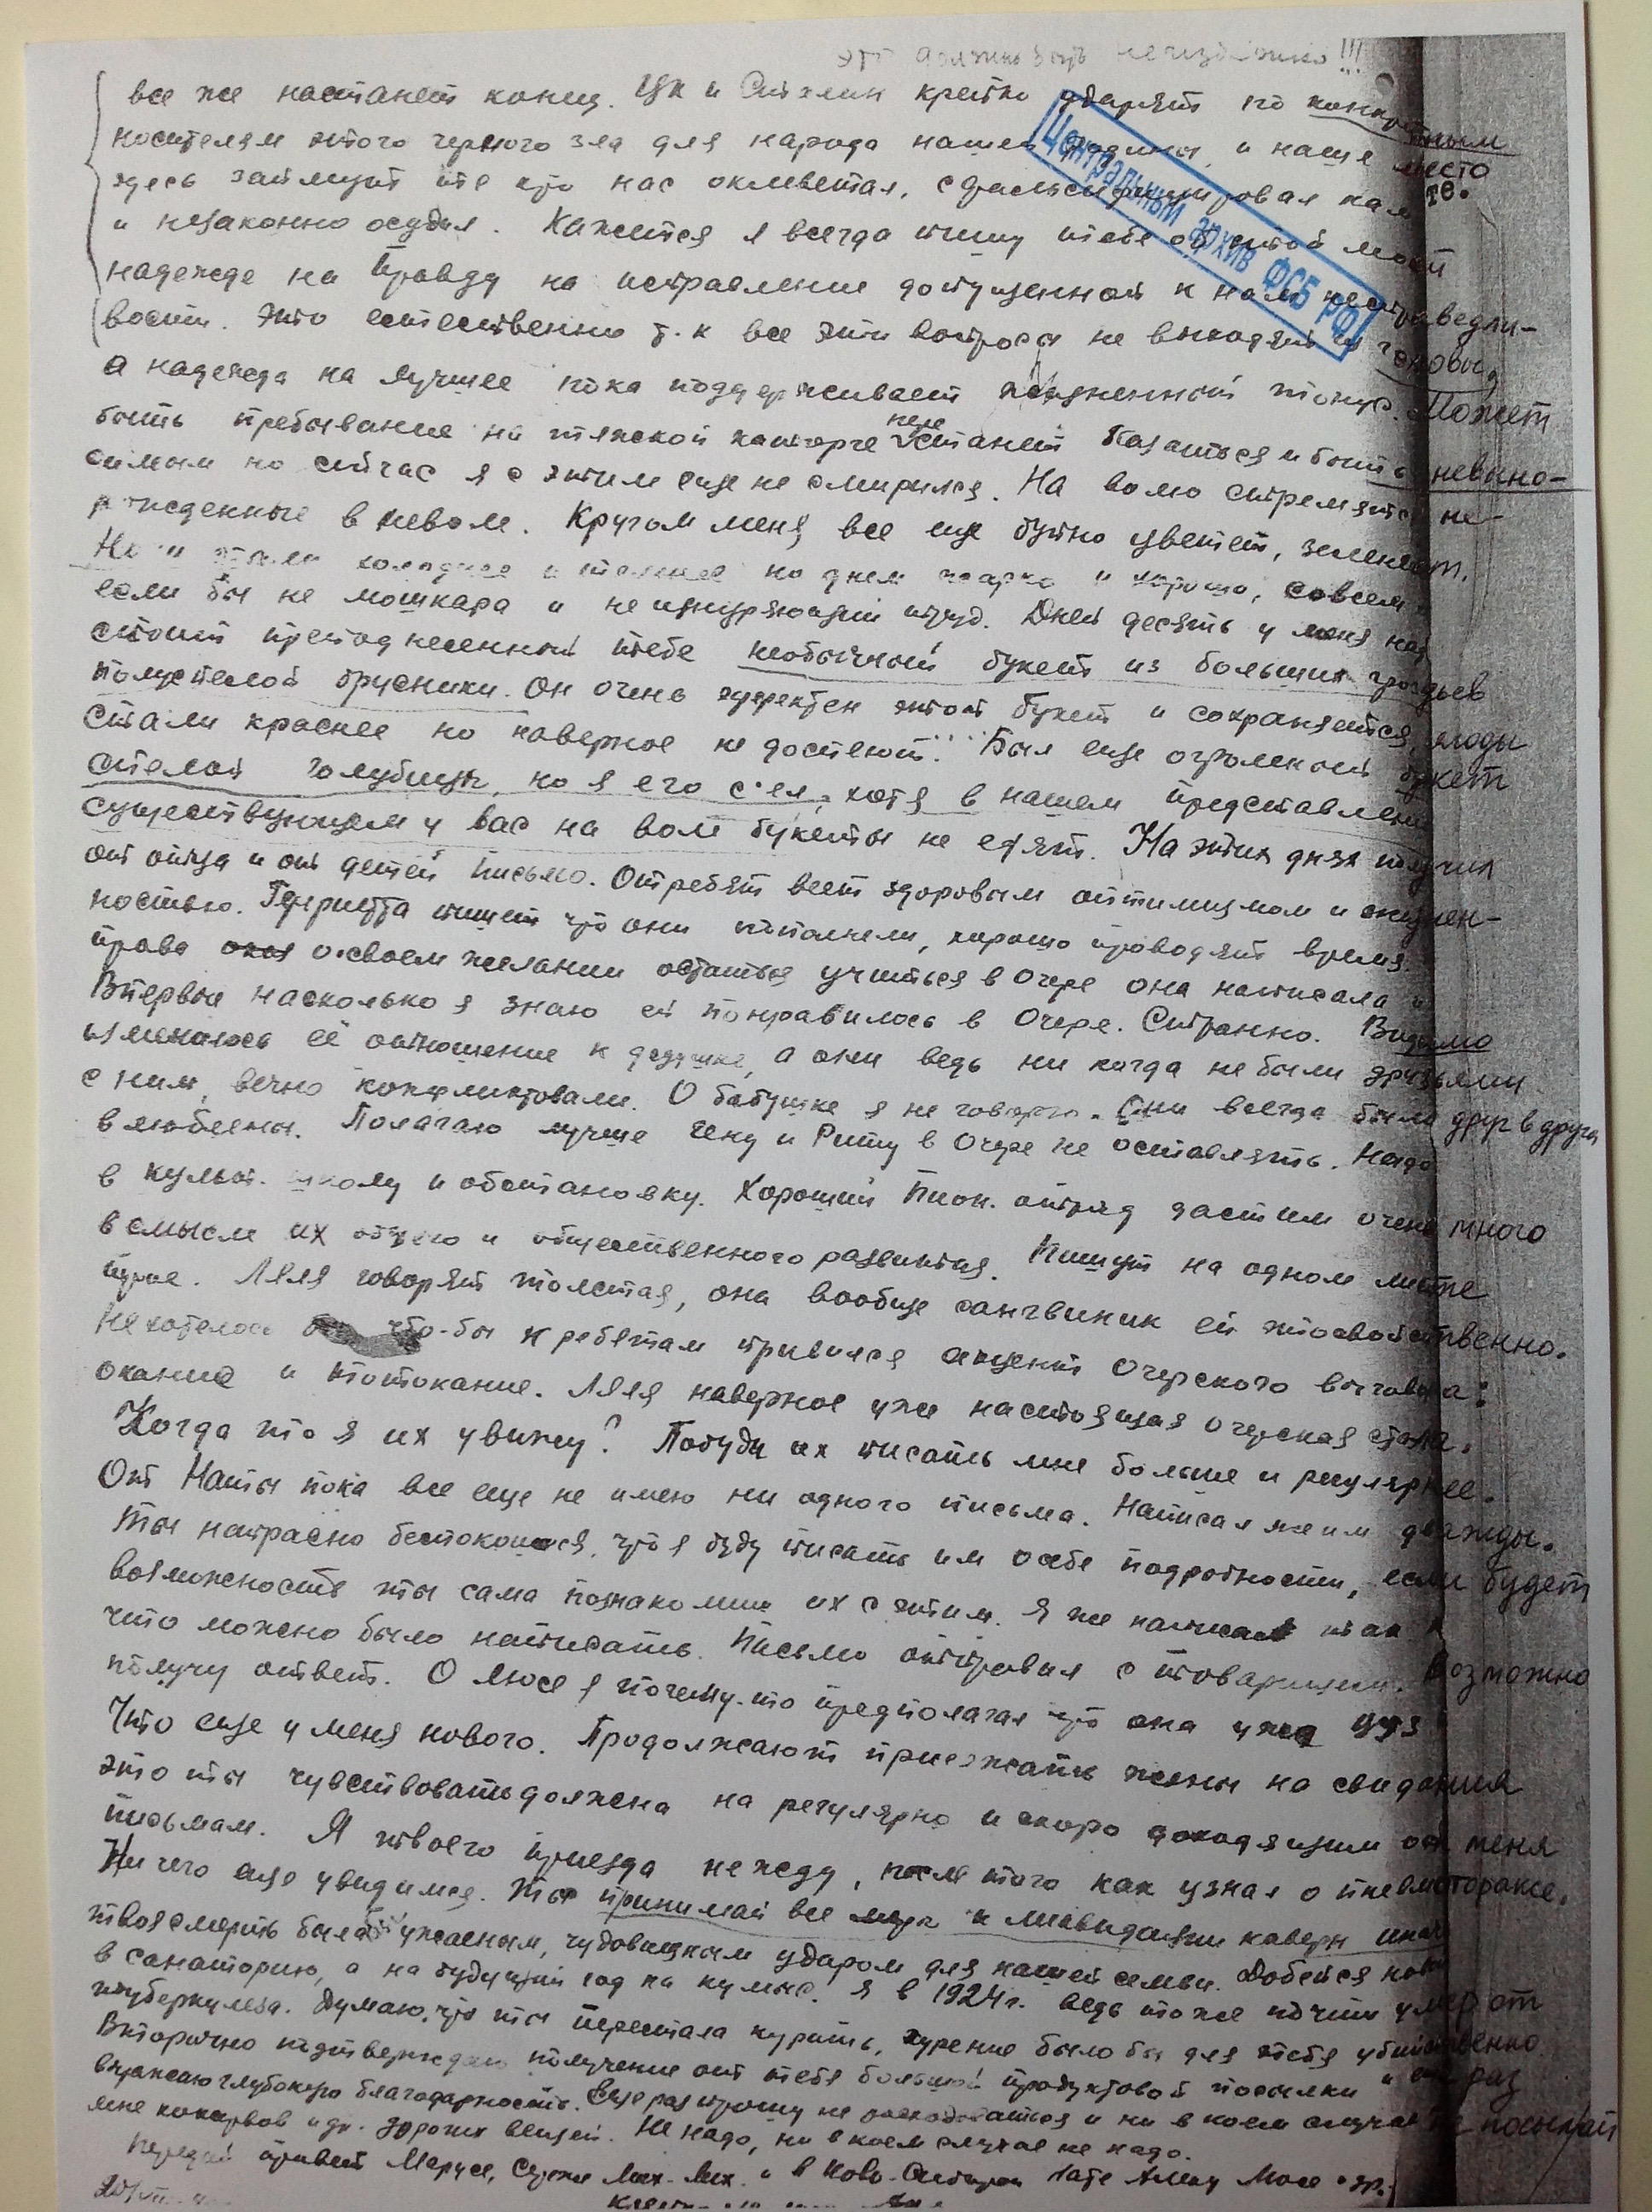 это должно быть
все же настанет конец. ЦК и Сталин крепко ударят по конкретным
носителям этого черного зла для народа нашей родины, и наше место
здесь займут те кто нас оклеветал, сфальсифицировал
и незаконно осудил. Кажется я всегда пишу тебе об этой моей
надежде на Правду на исправление допущенной к нам несправедли-
вости. Это естественно т.к все эти вопросы не выходят из головы,
а надежда на лучшее пока поддерживает жизненный тонус. Может
быть пребывание на тяжкой каторге перестанет казаться и быть невыно-
симым но сейчас я с этим еще не смирился. На волю стремятся не
рожденные в неволе. Кругом меня все еще буйно цветет, зеленеет.
Ночи стали холоднее и темнее но днем жарко и хорошо, совсем
если бы не мошкара и не изнуряющий труд. Дней десять у меня
стоит преподнесенный тебе необычный букет из больших гроздьев
полуспелой брусники. Он очень эффектен этот букет и сохраняется, ягоды
стали краснее но наверное не доспеют. Был еще огромный букет
спелой голубицы, но я его с'ел, хотя в нашем представлении
существующем у вас на воле букеты не едят. На этих днях получил
от отца и от детей письмо. От ребят веет здоровым оптимизмом и жизнен-
ностью. Генриетта пишет что они пополнели, хорошо проводят время.
права о своем желании остаться учиться в Очере она написала и
Впервые насколько я знаю ей понравилось в Очере. Странно. Видимо
изменилось её отношение к дедушке, а они ведь ни когда не были друзьями
с ним, вечно конфликтовали. О бабушке я не говорю. Они всегда были друг в друга
влюблены. Полагаю лучше Гену и Риту в Очере не оставлять. Надо
в культ. школу и обстановку. Хороший пион. отряд даст им очень много
в смысле их общего и общественного развития. Пишут на одном листе
трое. Ляля говорят толстая, она вообще сангвиник ей это свойственно.
Не хотелось что-бы к ребятам привился акцент Очерского выговора:
окание и тотокание. Ляля наверное уже настоящая очерская стала.
Когда то я их увижу? Побуди их писать мне больше и регулярнее.
От Наты пока все еще не имею ни одного письма. Написал же им дважды.
Ты напрасно беспокоишься, что я буду писать им о себе подробности, если будет
возможность ты сама познакомишь их с этим. Я же написал так
что можно было написать. Письмо отправил с товарищем. Возможно
получу ответ. О Люсе я почему-то предполагал что она уже
Что еще у меня нового. Продолжают приезжать жены на свидания
это ты чувствовать должна на регулярно и скоро доходящим от меня
письмам. Я твоего приезда не жду, после того как узнал о пневмотораксе.
Ничего еще увидимся. Ты принимай все меры к ликвидации каверн иначе
твоя смерть была бы ужасным, чудовищным ударом для нашей семьи. Добейся
в санаторию, а на будущий год на кумыс. Я в 1924г. ведь тоже почти умер от
туберкулеза. Думаю, что ты перестала курить, курение было бы для тебя убийственно.
Вторично подтверждаю получение от тебя большой продуктовой посылки и еще раз
выражаю глубокую благодарность. Еще раз прошу не расходоваться и ни в коем случае не посылай
мне консервов и др. дорогих вещей. Не надо, ни в коем случае не надо.
Передай привет Марусе, Мих. Мих. и в Ново-Сибирск Тате и др.
Центральный архив ФСБ РФ